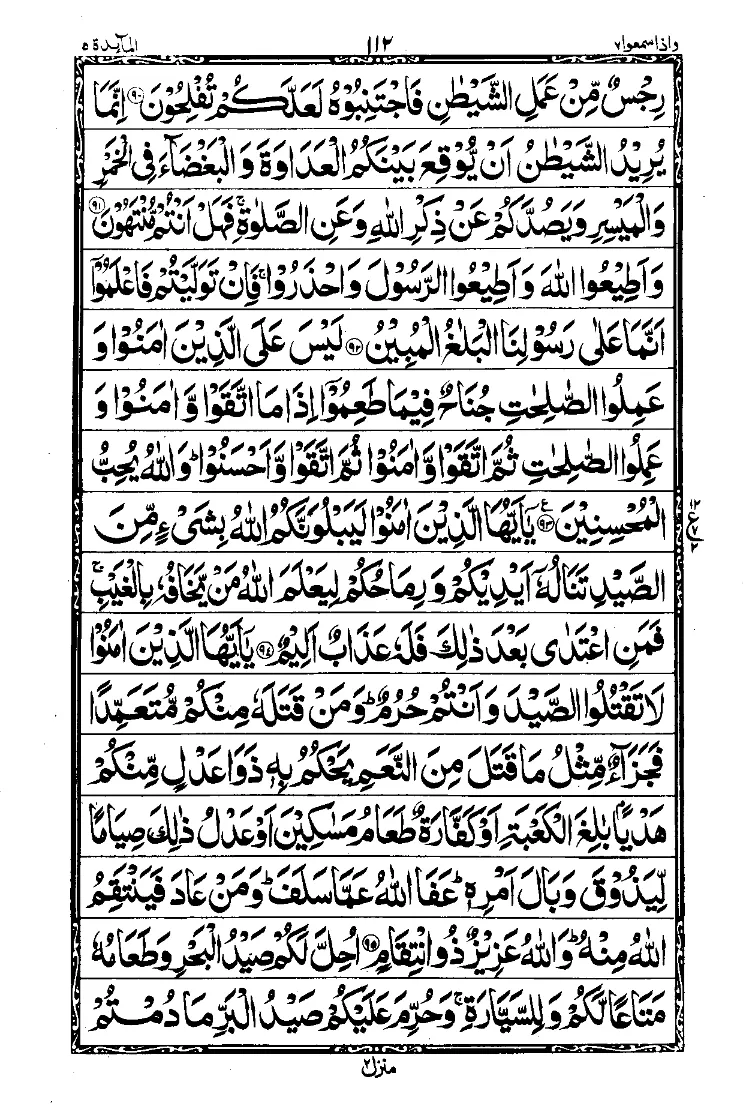 واذاسمعوا۷ ۱۱۲ المآئدة ۵
رِجْسٌ مِّنْ عَمَلِ الشَّيْطٰنِ فَاجْتَنِبُوْهُ لَعَلَّكُمْ تُفْلِحُوْنَ ﴿۹۰﴾ اِنَّمَا
يُرِيْدُ الشَّيْطٰنُ اَنْ يُّوْقِعَ بَيْنَكُمُ الْعَدَاوَةَ وَ الْبَغْضَآءَ فِى الْخَمْرِ
وَالْمَيْسِرِ وَيَصُدَّكُمْ عَنْ ذِكْرِ اللّٰهِ وَعَنِ الصَّلٰوةِ ۚ فَهَلْ اَنْتُمْ مُّنْتَهُوْنَ ﴿۹۱﴾
وَ اَطِيْعُوا اللّٰهَ وَ اَطِيْعُوا الرَّسُوْلَ وَ احْذَرُوْا ۚ فَاِنْ تَوَلَّيْتُمْ فَاعْلَمُوْٓا
اَنَّمَا عَلٰى رَسُوْلِنَا الْبَلٰغُ الْمُبِيْنُ ﴿۹۲﴾ لَيْسَ عَلَى الَّذِيْنَ اٰمَنُوْا وَ
عَمِلُوا الصّٰلِحٰتِ جُنَاحٌ فِيْمَا طَعِمُوْٓا اِذَا مَا اتَّقَوْا وَّ اٰمَنُوْا وَ
عَمِلُوا الصّٰلِحٰتِ ثُمَّ اتَّقَوْا وَّ اٰمَنُوْا ثُمَّ اتَّقَوْا وَّ اَحْسَنُوْا ؕ وَ اللّٰهُ يُحِبُّ
الْمُحْسِنِيْنَ ﴿۹۳﴾ ع يٰٓاَيُّهَا الَّذِيْنَ اٰمَنُوْا لَيَبْلُوَنَّكُمُ اللّٰهُ بِشَىْءٍ مِّنَ
الصَّيْدِ تَنَالُهٗٓ اَيْدِيْكُمْ وَ رِمَاحُكُمْ لِيَعْلَمَ اللّٰهُ مَنْ يَّخَافُهٗ بِالْغَيْبِ ۚ
فَمَنِ اعْتَدٰى بَعْدَ ذٰلِكَ فَلَهٗ عَذَابٌ اَلِيْمٌ ﴿۹۴﴾ يٰٓاَيُّهَا الَّذِيْنَ اٰمَنُوْا
لَا تَقْتُلُوا الصَّيْدَ وَ اَنْتُمْ حُرُمٌ ؕ وَ مَنْ قَتَلَهٗ مِنْكُمْ مُّتَعَمِّدًا
فَجَزَآءٌ مِّثْلُ مَا قَتَلَ مِنَ النَّعَمِ يَحْكُمُ بِهٖ ذَوَا عَدْلٍ مِّنْكُمْ
هَدْيًۢا بٰلِغَ الْكَعْبَةِ اَوْ كَفَّارَةٌ طَعَامُ مَسٰكِيْنَ اَوْ عَدْلُ ذٰلِكَ صِيَامًا
لِّيَذُوْقَ وَبَالَ اَمْرِهٖ ؕ عَفَا اللّٰهُ عَمَّا سَلَفَ ؕ وَ مَنْ عَادَ فَيَنْتَقِمُ
اللّٰهُ مِنْهُ ؕ وَ اللّٰهُ عَزِيْزٌ ذُو انْتِقَامٍ ﴿۹۵﴾ اُحِلَّ لَكُمْ صَيْدُ الْبَحْرِ وَ طَعَامُهٗ
مَتَاعًا لَّكُمْ وَ لِلسَّيَّارَةِ ۚ وَ حُرِّمَ عَلَيْكُمْ صَيْدُ الْبَرِّ مَا دُمْتُمْ
منزل۲